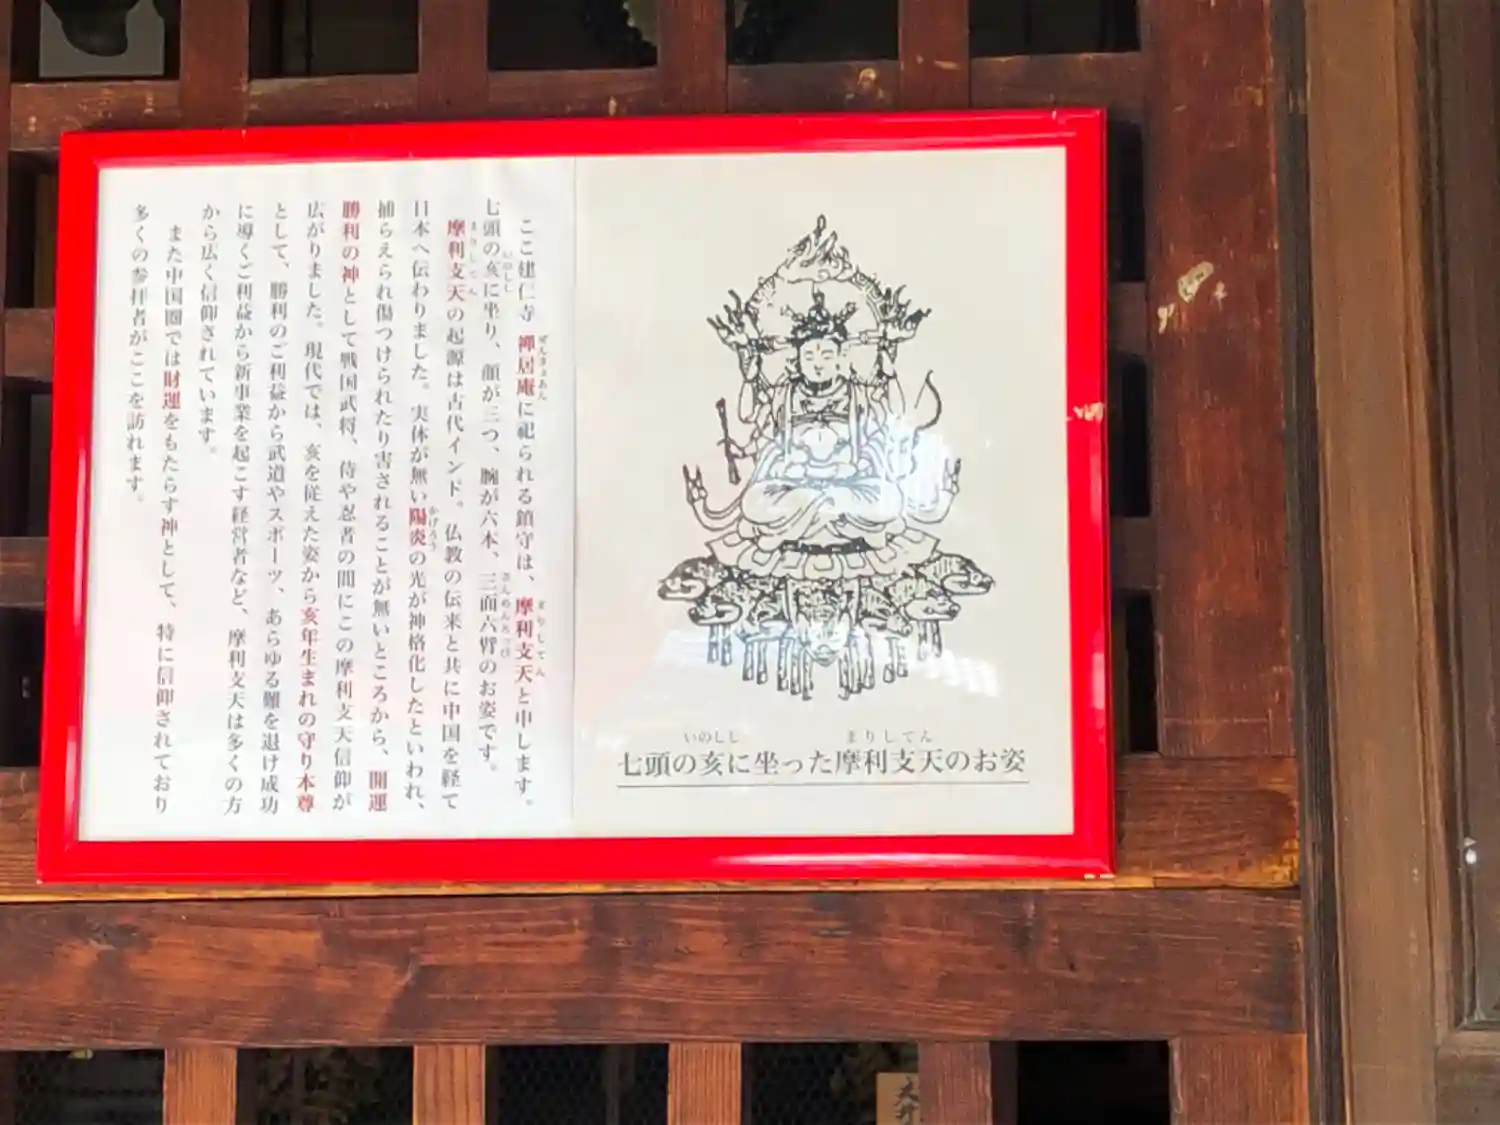 ここ建仁寺 禅居庵に祀られる鎮守は、摩利支天と申します。
七頭の亥に坐り、顔が三つ、腕が六本、三面六臂のお姿です。
摩利支天の起源は古代インド。仏教の伝来と共に中国を経て
日本へ伝わりました。実体が無い陽炎の光が神格化したといわれ、
捕らえられ傷つけられたり害されることが無いところから、開運
勝利の神として戦国武将、侍や忍者の間にこの摩利支天信仰が
広がりました。現代では、亥を従えた姿から亥年生まれの守り本尊
として、勝利のご利益から武道やスポーツ、あらゆる難を退け成功
に導くご利益から新事業を起こす経営者など、摩利支天は多くの方
から広く信仰されています。
また中国圏では財運をもたらす神として、特に信仰されており
多くの参拝者がここを訪れます。
ぜんきょあん
まりしてん
いのしし
さんめんろっぴ
まりしてん
かげろう
いのしし まりしてん
七頭の亥に坐った摩利支天のお姿